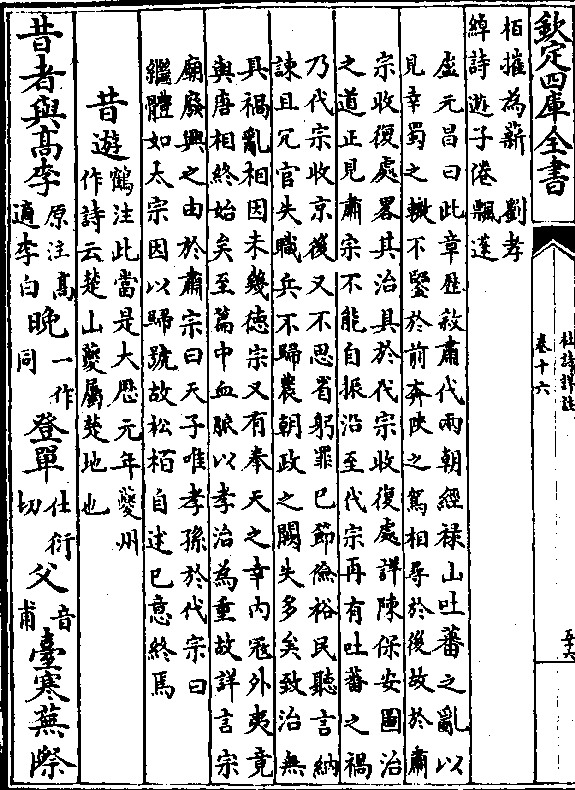 欽定四庫全書
杜詩詳註
卷十六
五十六
栢摧為薪　劉孝
綽詩遊子倦飄蓬
盧元昌曰此章歴敘肅代兩朝經禄山吐蕃之亂以
見幸蜀之轍不鑒於前奔陜之駕相尋於後故於肅
宗收復處畧其治具於代宗收復處詳陳保安圖治
之道正見肅宗不能自振沿至代宗再有吐蕃之禍
乃代宗收京後又不思省躬罪已節儉裕民聽言納
諫且冗官失職兵不歸農朝政之闕失多矣致治無
具禍亂相因未幾徳宗又有奉天之幸内冦外夷竟
與唐相終始矣至篇中血脉以孝治為重故詳言宗
廟廢興之由於肅宗曰天子唯孝孫於代宗曰
繼體如太宗因以歸號故松栢自述已意終焉
昔遊 鶴注此當是大厯元年夔州
作詩云楚山夔屬楚地也
昔者與髙李 原注髙適李白 晚 一作同 登單 仕衍切 父 音甫 臺寒蕪際